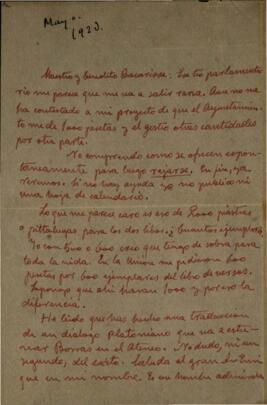 Mayo
1920.
Maestro y bendito Bacarisse: La tía parlamenta
rio me parece que me va a salir rana. Aun no me
ha contestado a mi proyecto de que el Ayuntamien
to me de 1000 pesetas y el gestio otras cantidades
por otra parte.
No comprendo como se ofrecen espon-
taneamente para luego rajarse. En fin, ya
veremos. Si no hay ayuda yo no publico ni
una hoja de calendario.
Lo que me parece caro es eso de 2000 piastras
para los dos libros. ¿Cuantos ejemplares?
Yo con 500 o 600 creo que tengo de sobra para
toda la vida. En la Union me pidieron 600
pesetas por 600 ejemplares del libro de versos.
Supongo que ahi haran 1000 y por eso la
diferencia.
He leido que has hecho una traduccion
de un dialogo platoniano que va a estre-
nar Borras en el Ateneo. No dudo, ni un
segundo, del exito. Saluda al gran Enri
que en mi nombre. Es un hombre admirable